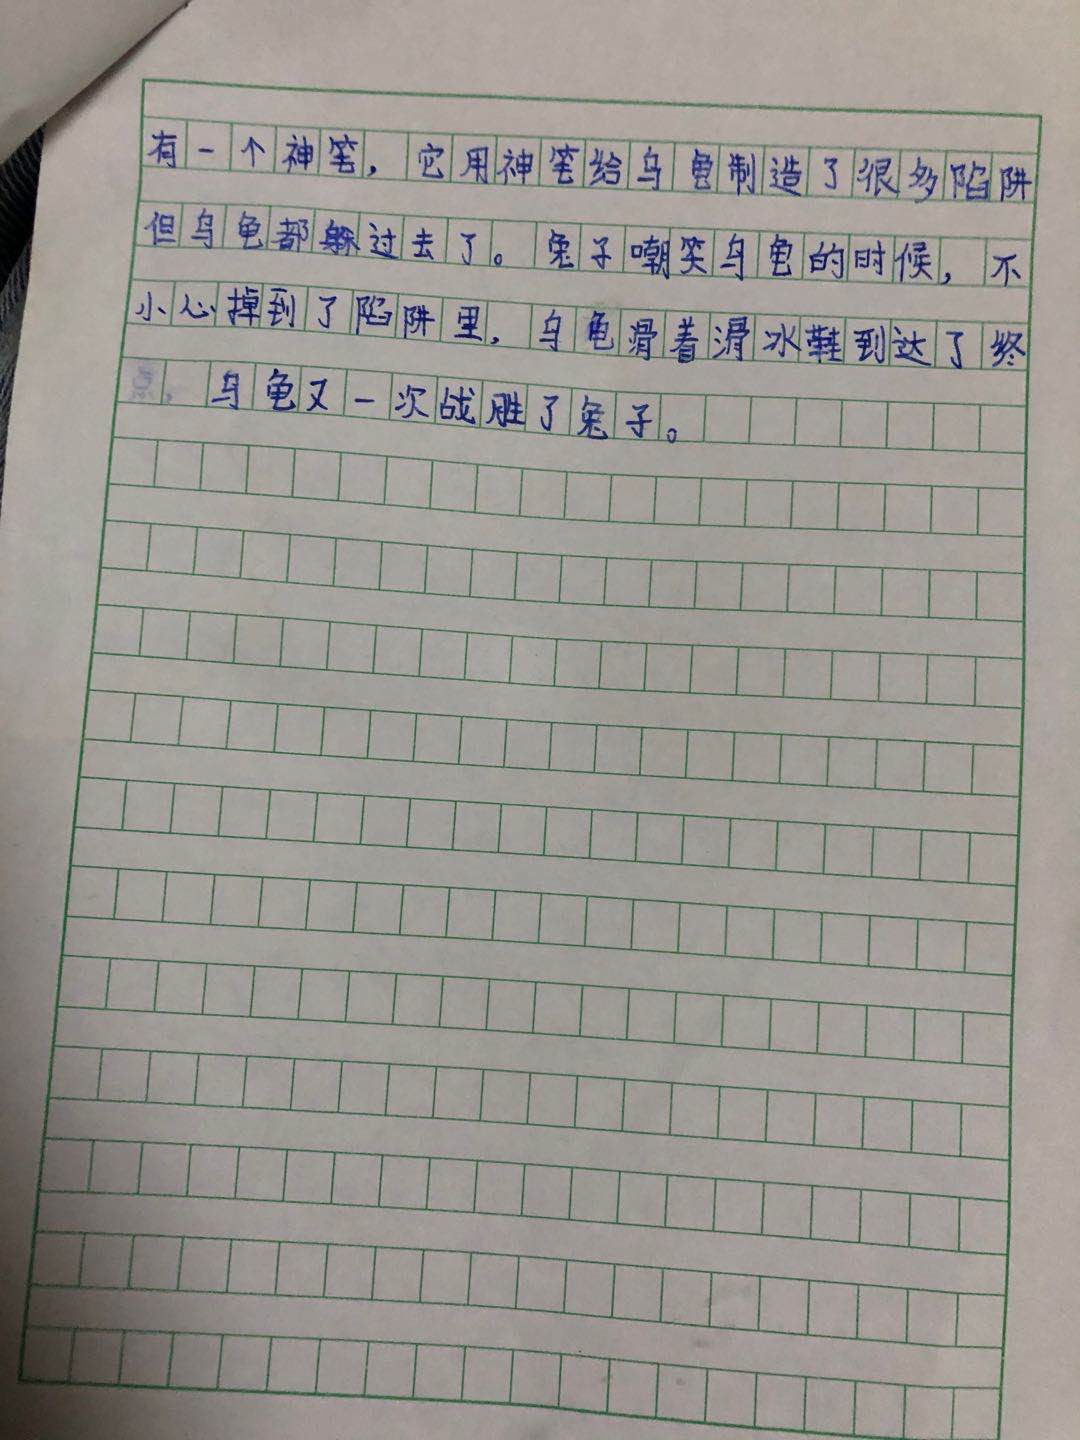 有一个神笔，它用神笔给乌龟制造了很多陷阱
但乌龟都躲过去了。兔子嘲笑乌龟的时候，不
小心掉到了陷阱里，乌龟滑着滑冰鞋到达了终
点，乌龟又一次战胜了兔子。